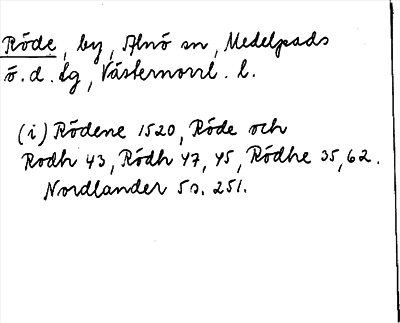 Röde, by, Alnö sn, Medelpads
ö. d. tg, Västernorrl. l.
(i) Rödene 1520, Röde och
Rodh 43, Rödh 47, 45, Rödhe 35, 62.
Nordlander 5 s. 251.